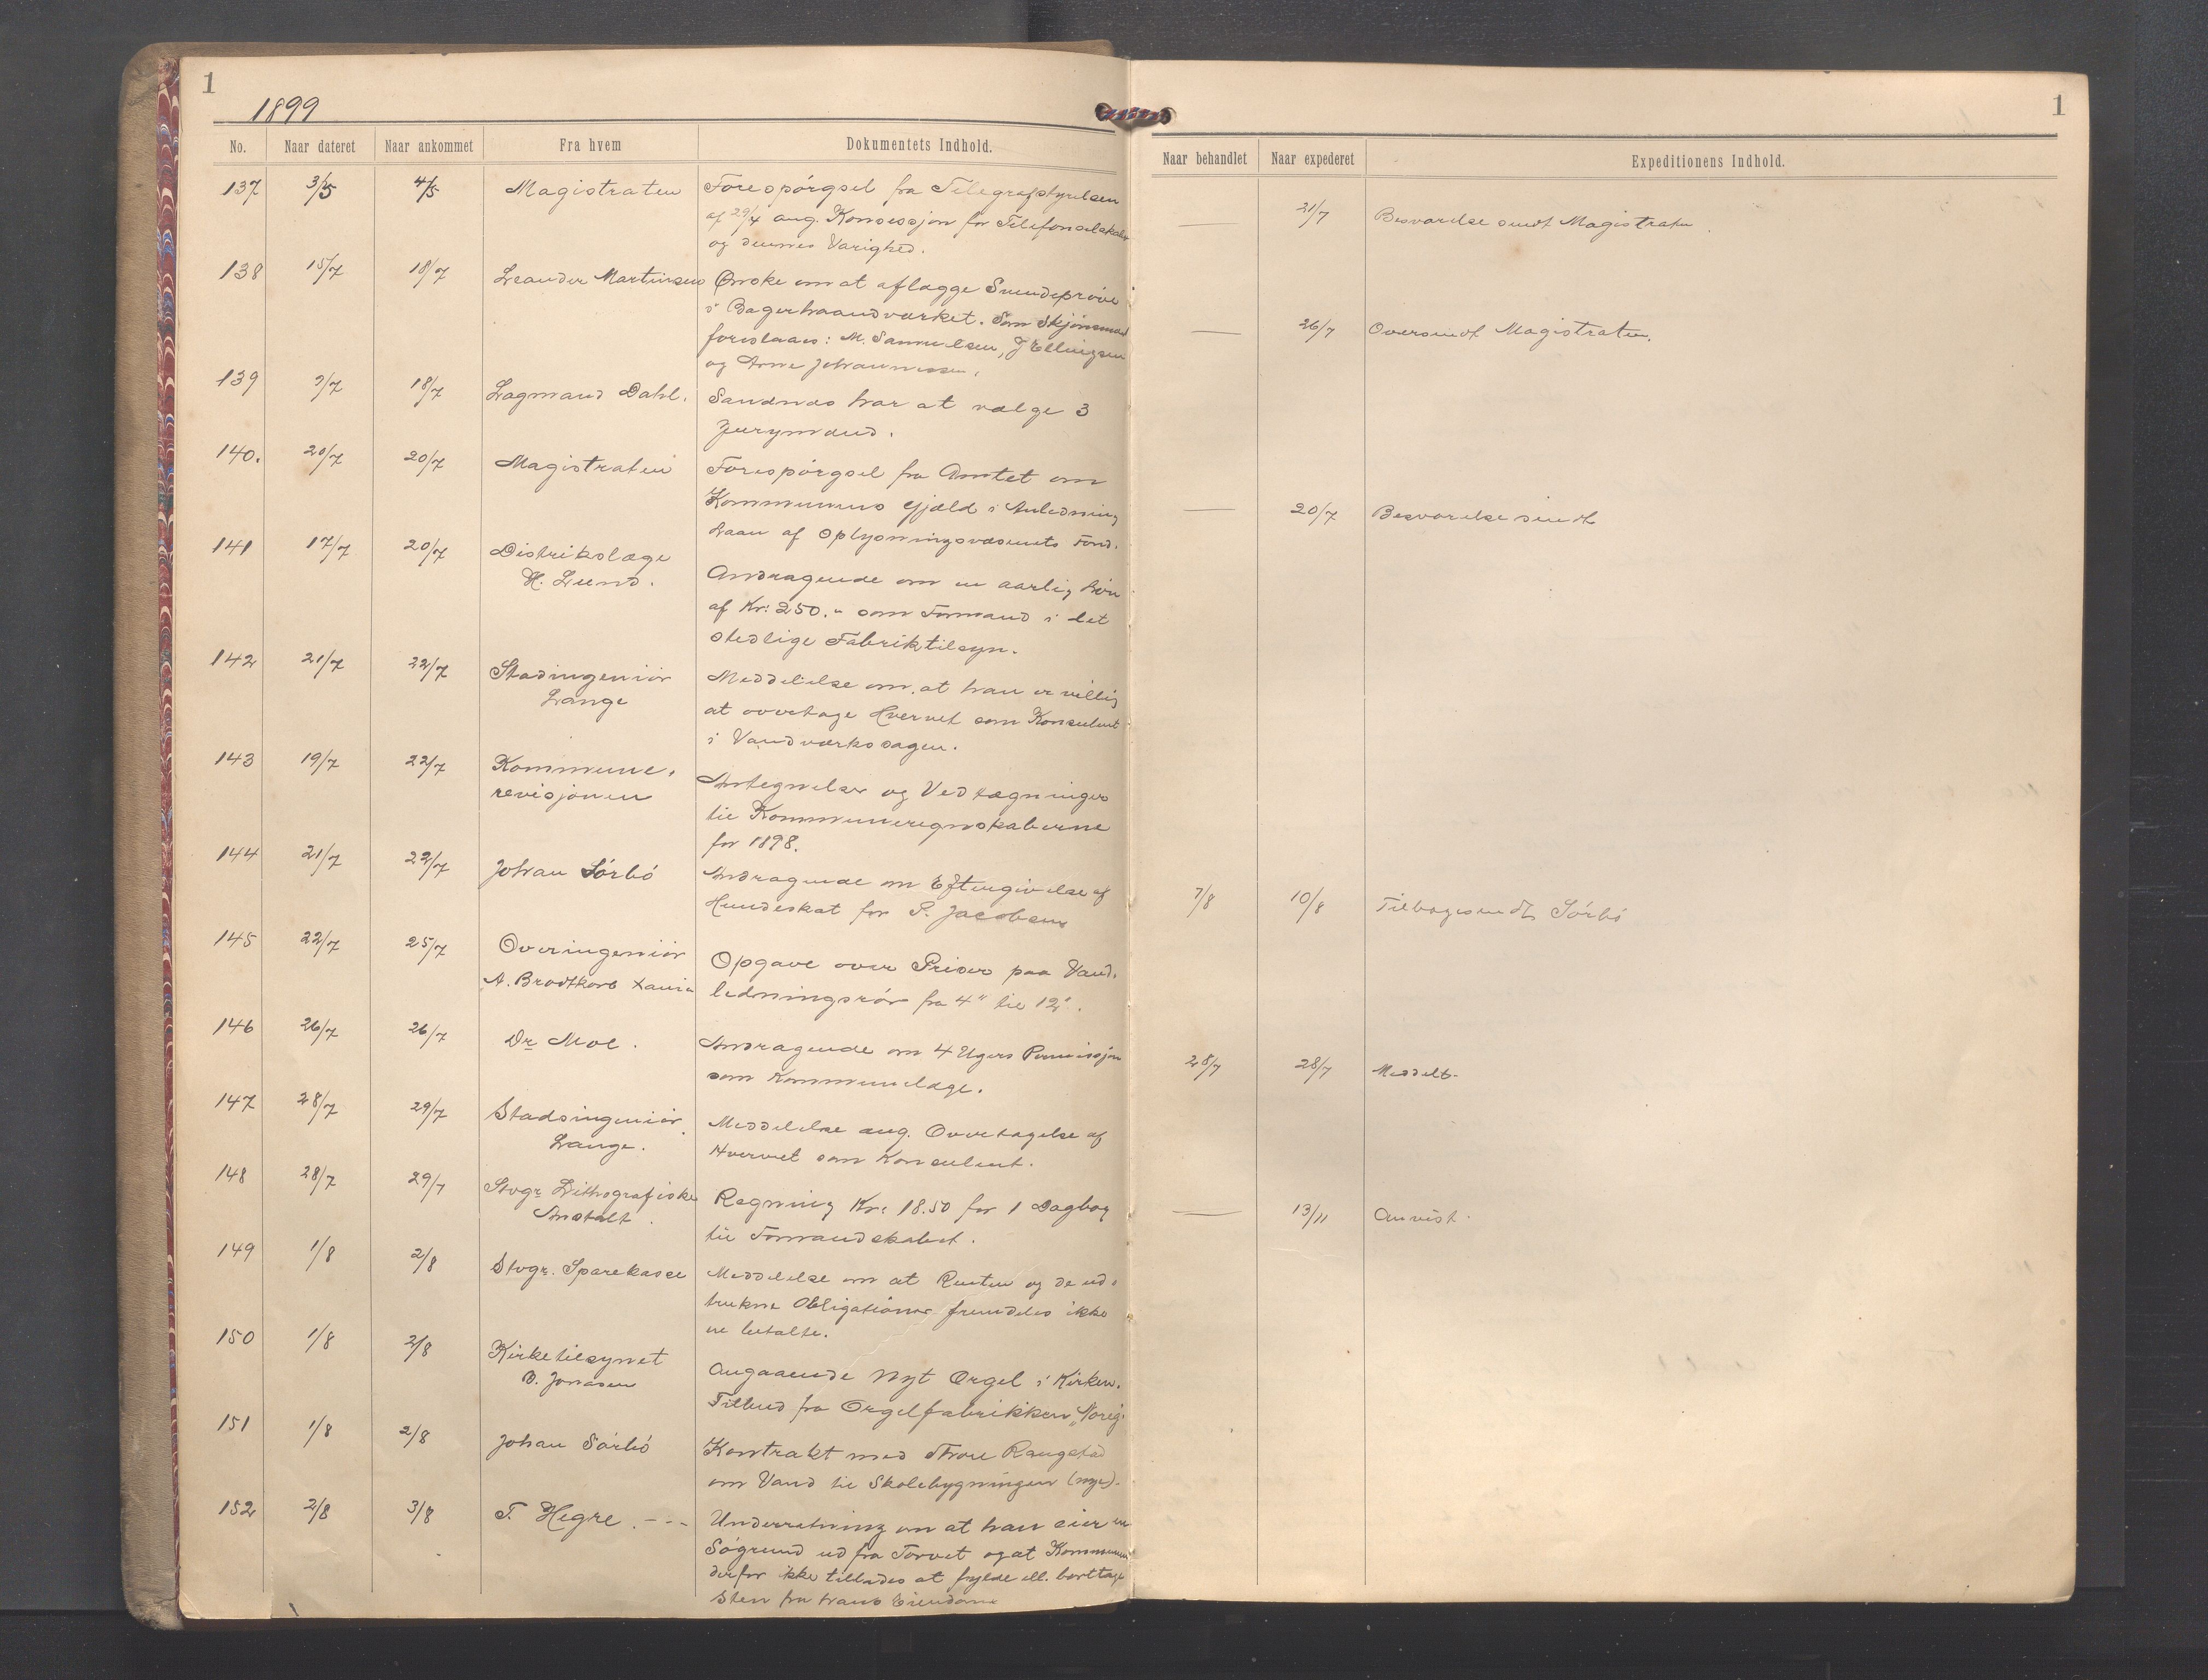 1
1899
No. Naar dateret Naar ankommet Fra hvem Dokumentets Indhold.
137 3/5 4/5 Magistraten Forespörgsel fra Telegrafstyrelsen
af 29/4 ang. Konsessjon for Telefonselskabet
og dennes Varighed.
138 15/7 18/7 Leander Martinsens Ønske om at aflægge Svendepröve
i Bagerhaandværket. Som Skjönsmænd
foreslaaes: M. Samuelsen, J Ellingsen
og Arne Johannessen.
139 9/7 18/7 Lagmand Dahl. Sandnæs har at vælge 3
Jurymænd.
140. 20/7 20/7 Magistraten Forespörgsel fra Amtet om
Kommunens Gjæld i Anledning
Laan af Oplysningsvæsenets Fond.
141 17/7 20/7 Distrikslæge
H. Lund.
Andragende om en aarlig Lön
af Kr: 250.- som Formand i det
stedlige Fabriktilsyn.
142 21/7 22/7 Stadingeniör
Lange
Meddelelse om, at han er villig
at overtage Hvervet som Konsulent
i Vandværkssagen.
143 19/7 22/7 Kommune-
revisjonen
Antegnelser og Vedtægninger
til Kommuneregnskaberne
for 1898.
144 21/7 22/7 Johan Sörbö Andragende om Eftergivelse af
Hundeskat for P. Jacobsen
145 22/7 25/7 Overingeniör
A. Brodtkorb Xania
Opgave over Priser paa Vand-
ledningsrör fra 4" til 12".
146 26/7 26/7 Dr Moe. Andragende om 4 Ugers Permissjon
som Kommunelæge.
147 28/7 29/7 Stadsingeniör
Lange.
Meddelelse ang. Overtagelse af
Hvervet som Konsulent.
148 28/7 29/7 Stvgr Lithografiske
Anstalt.
Regning Kr: 18.50 for 1 Dagbog
til Formandskabet.
149 1/8 2/8 Stvgr. Sparekasse Meddelelse om at Renten og de ud-
trukne Obligationer fremdeles ikke
er betalte.
150 1/8 2/8 Kirketilsynet
B. Jonasen
Angaaende Nyt Orgel i Kirken.
Tilbud fra Orgelfabrikken "Noreg"
151 1/8 2/8 Johan Sörbö Kontrakt med Thore Raugstad
om Vand til Skolebygningen (nye).
152 2/8 3/8 T. Hegre. - - - Underretning om at han eier en
Sögrund ud fra Torvet og at Kommunen
derfor ikke tillades at fylde ell. borttage
Sten fra hans Eiendom
1
Naar behandlet Naar expederet Expeditionens Indhold.
— 21/7 Besvarelse sendt Magistraten.
— 26/7 Oversendt Magistraten.
— 20/7 Besvarelse sendt
7/8 10/8 Tilbagesendt Sörbö
28/7 28/7 Meddelt-
— 13/11 Anvist.